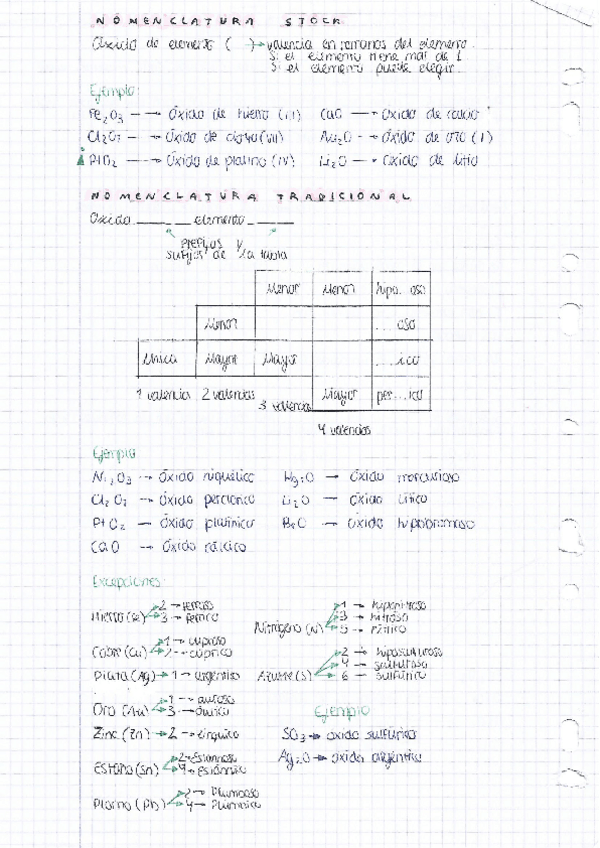 NOMENCLATURA STOCK
Óxido de elemento ( ) → valencia en romanos del elemento
Si el elemento tiene más de 1
Si el elemento puede elegir
Ejemplo:
Fe₂O₃ → Óxido de hierro (III) CaO → Óxido de calcio
Cl₂O₇ → Óxido de cloro (VII) Au₂O → Óxido de oro (I)
PtO₂ → Óxido de platino (IV) Li₂O → Óxido de litio
NOMENCLATURA TRADICIONAL
Óxido ____ elemento ____
prefijos y
sufijos de la tabla
Menor Menor hipo... oso
Menor ...oso
Única Mayor Mayor ...ico
1 valencia 2 valencias 3 valencias Mayor per...ico
4 valencias
Ejemplo
Ni₂O₃ → Óxido niquélico Hg₂O → Óxido mercurioso
Cl₂O₇ → Óxido perclórico Li₂O → Óxido lítico
PtO₂ → Óxido platínico Br₂O → Óxido hipobromoso
CaO → Óxido cálcico
Excepciones:
Hierro (Fe) 2 → ferroso
3 → férrico
Nitrógeno (N) 1 → hiponitroso
3 → nitroso
5 → nítrico
Cobre (Cu) 1 → cuproso
2 → cúprico
Plata (Ag) → 1 → argéntico
Azufre (S) 2 → hiposulfuroso
4 → sulfuroso
6 → sulfúrico
Oro (Au) 1 → auroso
3 → áurico
Ejemplo
Zinc (Zn) → 2 → cínquico
SO₃ → óxido sulfúrico
Estaño (Sn) 2 → Estannoso
4 → Estánnico
Ag₂O → óxido argéntico
Plomo (Pb) 2 → Plumboso
4 → Plúmbico